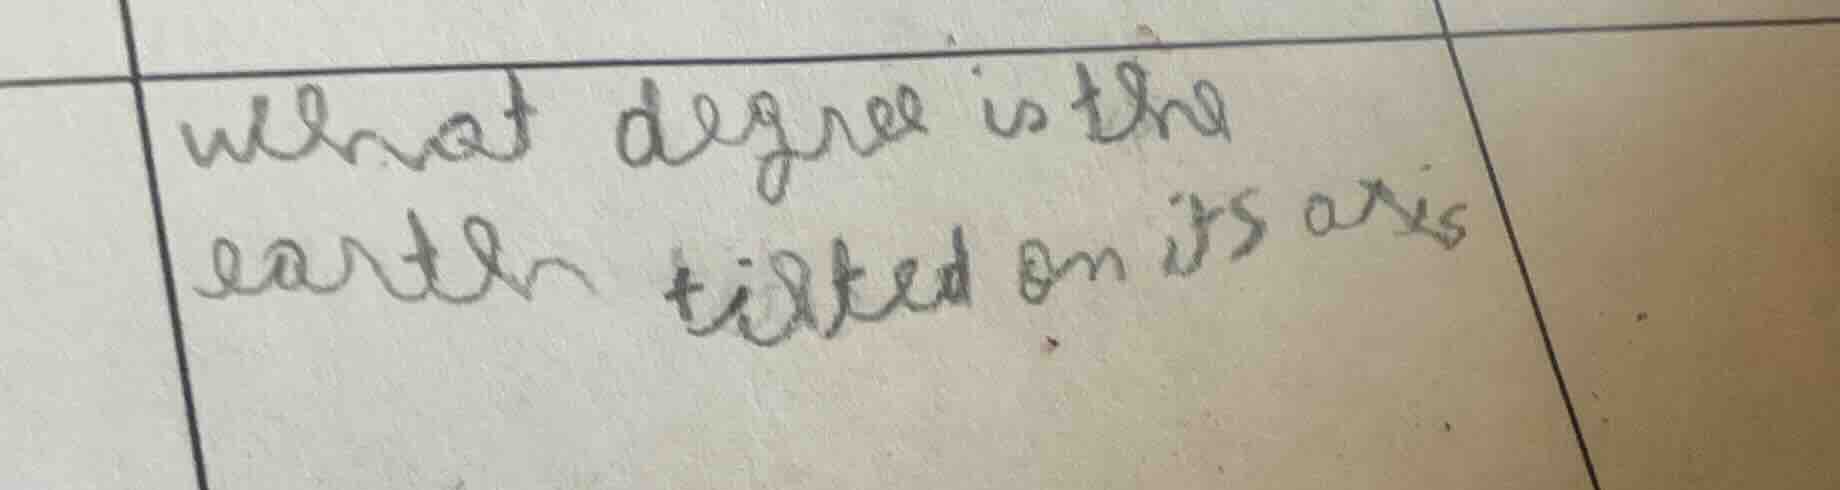 what degree is the
earth tilted on its axis